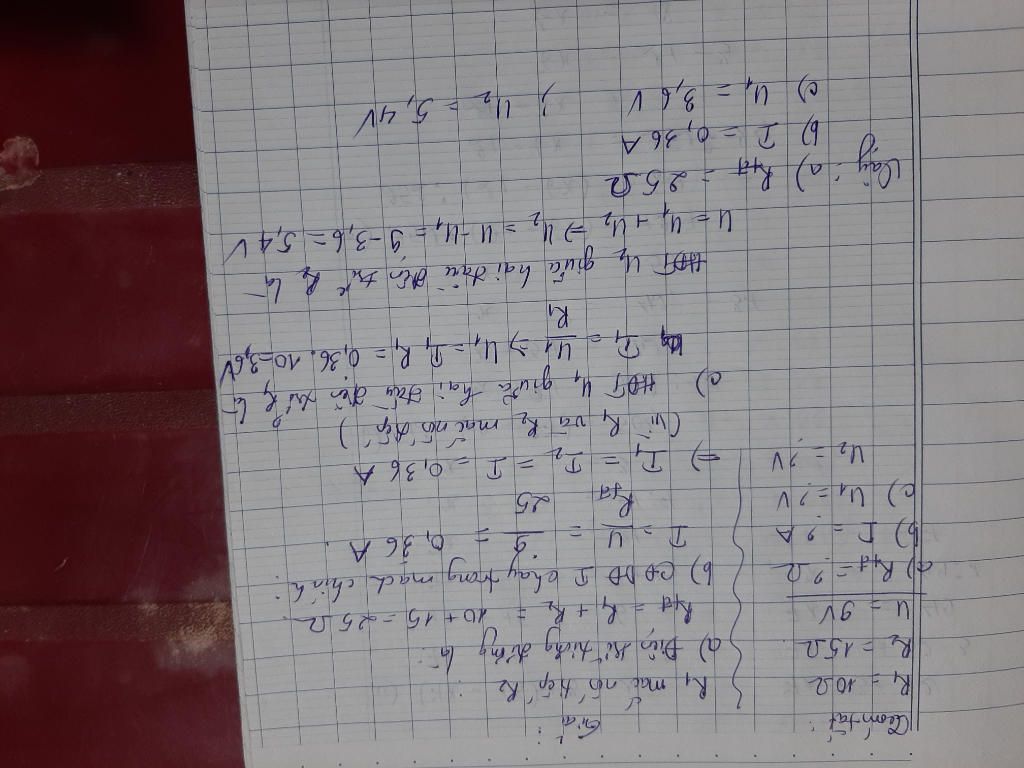 Tóm tắt:
R₁ = 10Ω
R₂ = 15Ω
U = 9V
a) Rtđ = ? Ω
b) I = ? A
c) U₁ = ? V
U₂ = ? V
Giải:
R₁ mắc nối tiếp R₂
a) Điện trở tương đương là:
Rtđ = R₁ + R₂ = 10 + 15 = 25Ω
b) CĐDĐ I chạy trong mạch chính:
I = U/Rtđ = 9/25 = 0,36 A.
→ I₁ = I₂ = I = 0,36 A
(vì R₁ và R₂ mắc nối tiếp)
c) HĐT U₁ giữa hai đầu điện trở R₁ là
I₁ = U₁/R₁ ⇒ U₁ = I₁.R₁ = 0,36.10=3,6V
HĐT U₂ giữa hai đầu điện trở R₂ là
U = U₁ + U₂ ⇒ U₂ = U - U₁ = 9-3,6 = 5,4 V
Vậy: a) Rtđ = 25Ω
b) I = 0,36 A
c) U₁ = 3,6 V ; U₂ = 5,4V